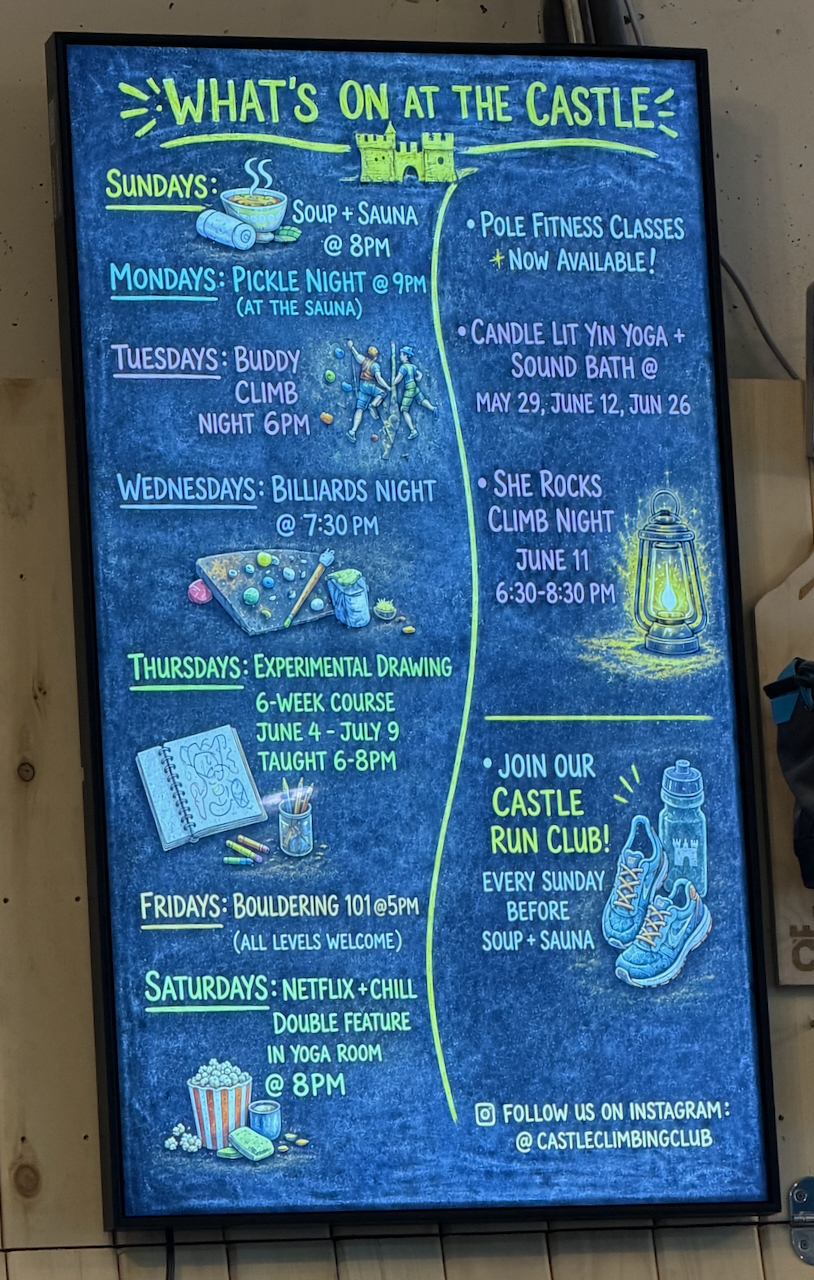 WHAT'S ON AT THE CASTLE
SUNDAYS:
SOUP + SAUNA
@ 8PM
MONDAYS: PICKLE NIGHT @ 9PM
(AT THE SAUNA)
TUESDAYS: BUDDY
CLIMB
NIGHT 6PM
WEDNESDAYS: BILLIARDS NIGHT
@ 7:30 PM
THURSDAYS: EXPERIMENTAL DRAWING
6-WEEK COURSE
JUNE 4 - JULY 9
TAUGHT 6-8PM
FRIDAYS: BOULDERING 101 @5PM
(ALL LEVELS WELCOME)
SATURDAYS: NETFLIX + CHILL
DOUBLE FEATURE
IN YOGA ROOM
@ 8PM
• POLE FITNESS CLASSES
NOW AVAILABLE!
• CANDLE LIT YIN YOGA +
SOUND BATH @
MAY 29, JUNE 12, JUN 26
• SHE ROCKS
CLIMB NIGHT
JUNE 11
6:30-8:30 PM
• JOIN OUR
CASTLE
RUN CLUB!
EVERY SUNDAY
BEFORE
SOUP + SAUNA
FOLLOW US ON INSTAGRAM:
@CASTLECLIMBINGCLUB